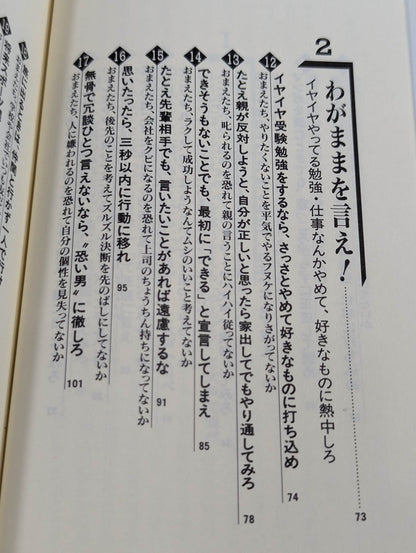 2 わがままを言え！
イヤイヤやってる勉強・仕事なんかやめて、好きなものに熱中しろ 73
12 イヤイヤ受験勉強をするなら、さっさとやめて好きなものに打ち込め 74
おまえたち、やりたくないことを平気でやるフヌケになりさがってないか
13 たとえ親が反対しようと、自分が正しいと思ったら家出してでもやり通してみろ 78
おまえたち、叱られるのを恐れて親の言うことにハイハイ従ってないか
14 できそうもないことでも、最初に「できる」と宣言してしまえ 85
おまえたち、ラクして成功しようなんてムシのいいこと考えてないか
15 たとえ先輩相手でも、言いたいことがあれば遠慮するな 91
おまえたち、会社をクビになるのを恐れて上司のちょうちん持ちになってないか
16 思いたったら、三秒以内に行動に移れ 95
おまえたち、後先のことを考えてズルズル決断を先のばしにしてないか
17 無骨で冗談ひとつ言えないなら、“恐い男”に徹しろ 101
おまえたち、人に嫌われるのを恐れて自分の個性を見失ってないか